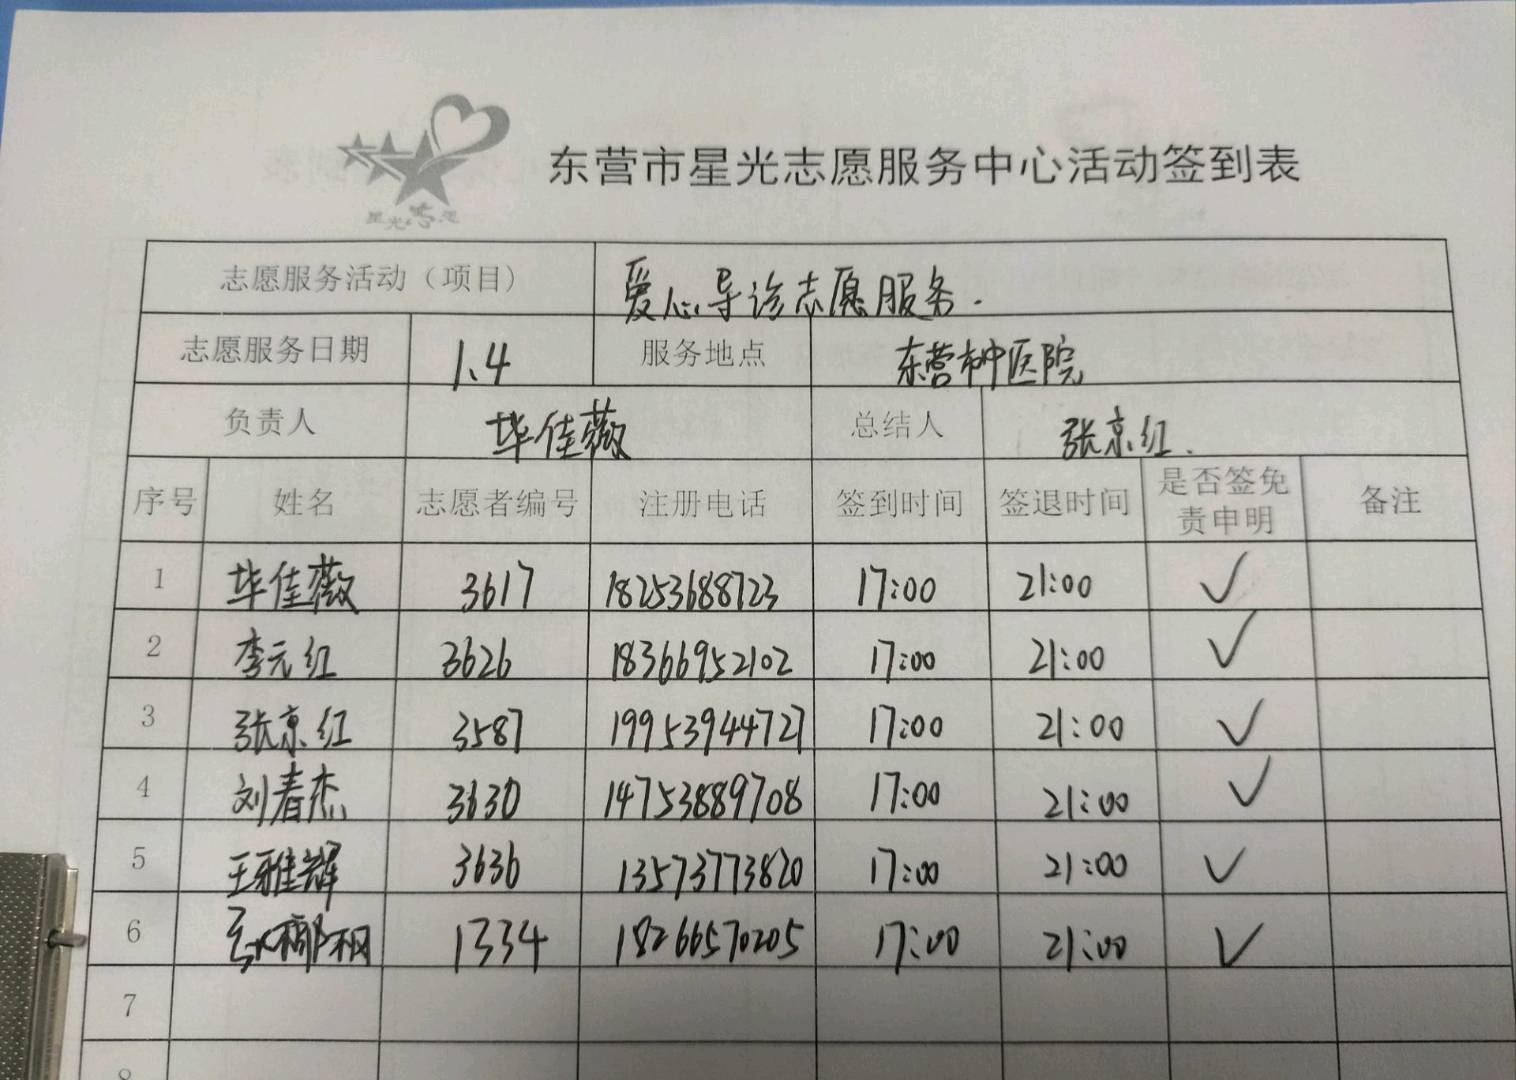 星光志愿
东营市星光志愿服务中心活动签到表
志愿服务活动（项目） 爱心导诊志愿服务.
志愿服务日期 1.4 服务地点 东营市中医院
负责人 毕佳薇 总结人 张京红.
序号 姓名 志愿者编号 注册电话 签到时间 签退时间 是否签免责申明 备注
1 毕佳薇 3617 18253688723 17:00 21:00 ✓
2 李元红 3626 18366952102 17:00 21:00 ✓
3 张京红 3587 19953944727 17:00 21:00 ✓
4 刘春杰 3630 14753889708 17:00 21:00 ✓
5 王雅辉 3636 13573773820 17:00 21:00 ✓
6 1334 18266570205 17:00 21:00 ✓
7
8